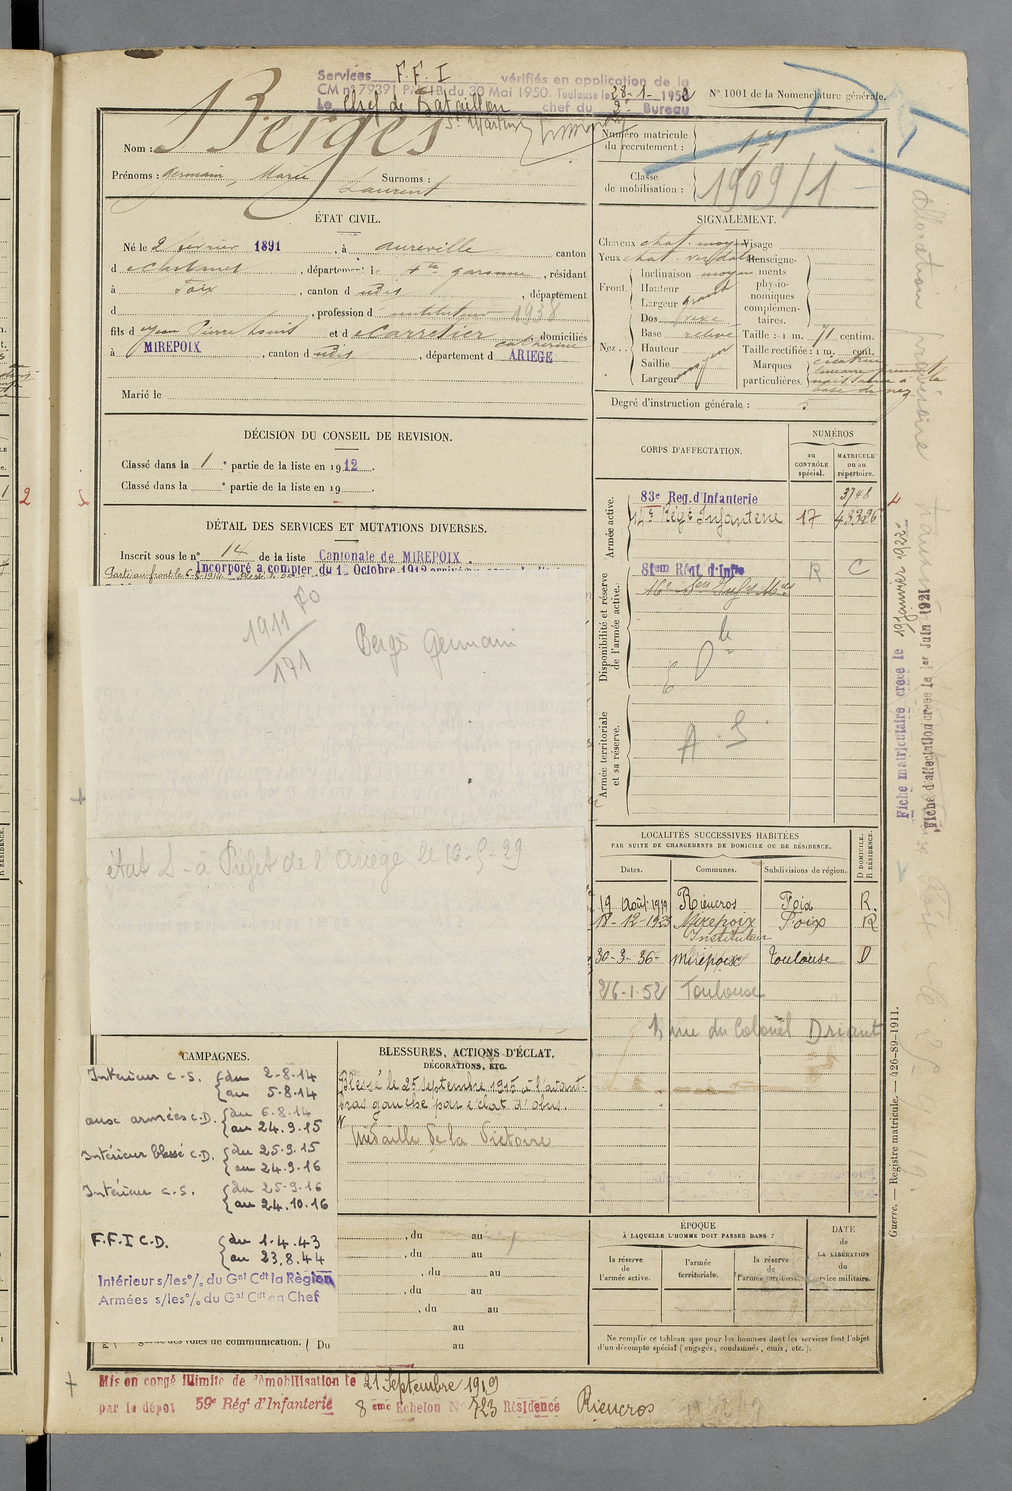 Services F.F.I vérifiés en application de la
CM n° 79391 P/ du 30 Mai 1950. Toulouse le 28-1-1952
Le Chef de Bataillon chef du 2e Bureau
N° 1001 de la Nomenclature générale.
Nom : Bergès
Prénoms : Germain, Marie Laurent Surnoms :
Numéro matricule du recrutement : 171
Classe de mobilisation : 1909/1
ÉTAT CIVIL.
Né le 2 février 1891, à Aureville canton
d , département de Hte Garonne, résidant
à Foix, canton d udis, département
d , profession d instituteur 1938
fils d Jean Pierre Louis et d Carretier Catherine domiciliés
à MIREPOIX, canton d udis, département d ARIEGE
Marié le
SIGNALEMENT.
Cheveux chat. moyen Visage
Yeux chat.
Renseignements physionomiques complémentaires.
Front. Inclinaison moyen
Hauteur
Largeur grand
Nez. Dos vexe
Base relevé
Hauteur
Saillie moyen
Largeur
Taille : 1 m. 71 centim.
Taille rectifiée : 1 m. cent.
Marques particulières. cicatrice linéaire
base du nez
Degré d'instruction générale : 3
DÉCISION DU CONSEIL DE REVISION.
Classé dans la 1e partie de la liste en 1912.
Classé dans la e partie de la liste en 19 .
DÉTAIL DES SERVICES ET MUTATIONS DIVERSES.
Inscrit sous le n° 14 de la liste Cantonale de MIREPOIX
Incorporé à compter du 1er Octobre 1912
Parti au front le 6-8-1914
1911 70
171
Bergès Germain
état - à Préfet de l'Ariège le 16-5-29
CORPS D'AFFECTATION.
NUMÉROS
au CONTRÔLE spécial.
MATRICULE ou au répertoire.
Armée active.
83e Reg. d'Infanterie 3748
14e Régt Infanterie 17 43326
Disponibilité et réserve de l'armée active.
81em Régt. d'Infie R C
Armée territoriale et sa réserve.
A. S
Fiche matriculaire créée le 19 janvier 1922
Fiche d'affectation créée le 1er Juin 1921
LOCALITÉS SUCCESSIVES HABITÉES
PAR SUITE DE CHANGEMENTS DE DOMICILE OU DE RÉSIDENCE.
Dates. Communes. Subdivisions de région. D DOMICILE. R RÉSIDENCE.
19 Août 1919 Rieucros Foix R.
18-12-1923 Mirepoix Foix R
Instituteur
30-3-36- Mirepoix Toulouse D
26-1-52 Toulouse
1, rue du Colonel Driant
CAMPAGNES.
Intérieur C.S. du 2-8-14
au 5-8-14
aux armées C.D. du 6-8-14
au 24.9.15
Intérieur blessé C.D. du 25-9-15
au 24-9-16
Intérieur C.S. du 25-9-16
au 24.10.16
F.F.I C.D. du 1.4.43
au 23.8.44
Intérieur s/les°/. du Gal Cdt la Région
Armées s/les°/. du Gal Cdt en Chef
BLESSURES, ACTIONS D'ÉCLAT,
DÉCORATIONS, ETC.
Blessé le 25 septembre 1915 à l'avant-
bras gauche par éclat d'obus.
Médaille de la Victoire
, du au
, du au
, du au
, du au
, du au
au
des voies de communication. Du au
ÉPOQUE
À LAQUELLE L'HOMME DOIT PASSER DANS :
la réserve de l'armée active.
l'armée territoriale.
la réserve de l'armée territoriale.
DATE de LA LIBÉRATION du service militaire.
Ne remplir ce tableau que pour les hommes dont les services font l'objet
d'un décompte spécial (engagés, condamnés, omis, etc.).
Guerre. — Registre matricule. — 426-89-1911.
Mis en congé illimité de démobilisation le 21 Septembre 1919
par le dépôt 59e Régt d'Infanterie 8 ème Echelon N° 723 Résidence Rieucros